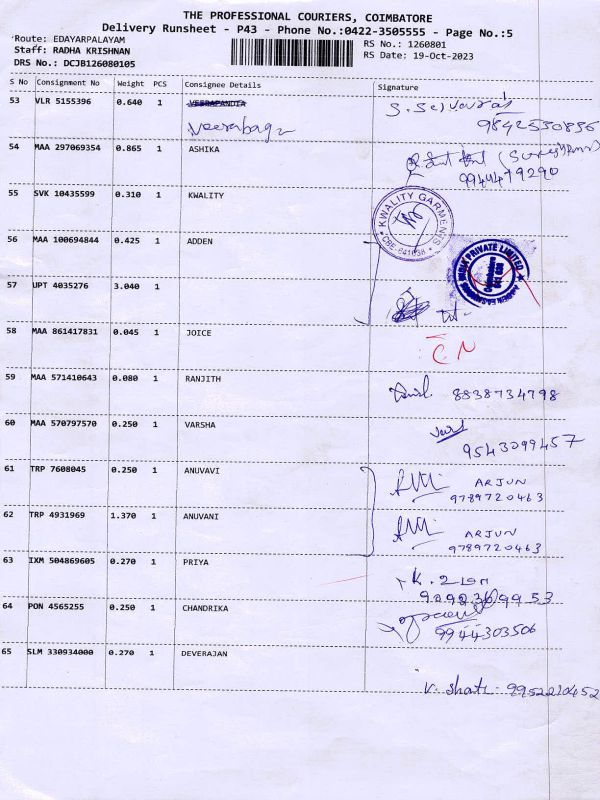 THE PROFESSIONAL COURIERS, COIMBATORE
Delivery Runsheet - P43 - Phone No.:0422-3505555 - Page No.:5
Route: EDAYARPALAYAM
RS No.: 1260801
Staff: RADHA KRISHNAN
RS Date: 19-Oct-2023
DRS No.: DCJB126080105
S No Consignment No Weight PCS Consignee Details Signature
53 VLR 5155396 0.640 1 VEERAPANDIA
9842550836
54 MAA 297069354 0.865 1 ASHIKA
9944479290
55 SVK 10435599 0.310 1 KWALITY
KWALITY GARMENTS
CBE-641038
56 MAA 100694844 0.425 1 ADDEN
INDIA PRIVATE LIMITED
57 UPT 4035276 3.040 1
58 MAA 861417831 0.045 1 JOICE
CN
59 MAA 571410643 0.080 1 RANJITH
8838734798
60 MAA 570797570 0.250 1 VARSHA
9543099457
61 TRP 7608045 0.250 1 ANUVAVI
ARJUN
9789720463
62 TRP 4931969 1.370 1 ANUVANI
ARJUN
9789720463
63 IXM 504869605 0.270 1 PRIYA
64 PON 4565255 0.250 1 CHANDRIKA
9944303506
65 SLM 330934000 0.270 1 DEVERAJAN
V. Shati 9952210452